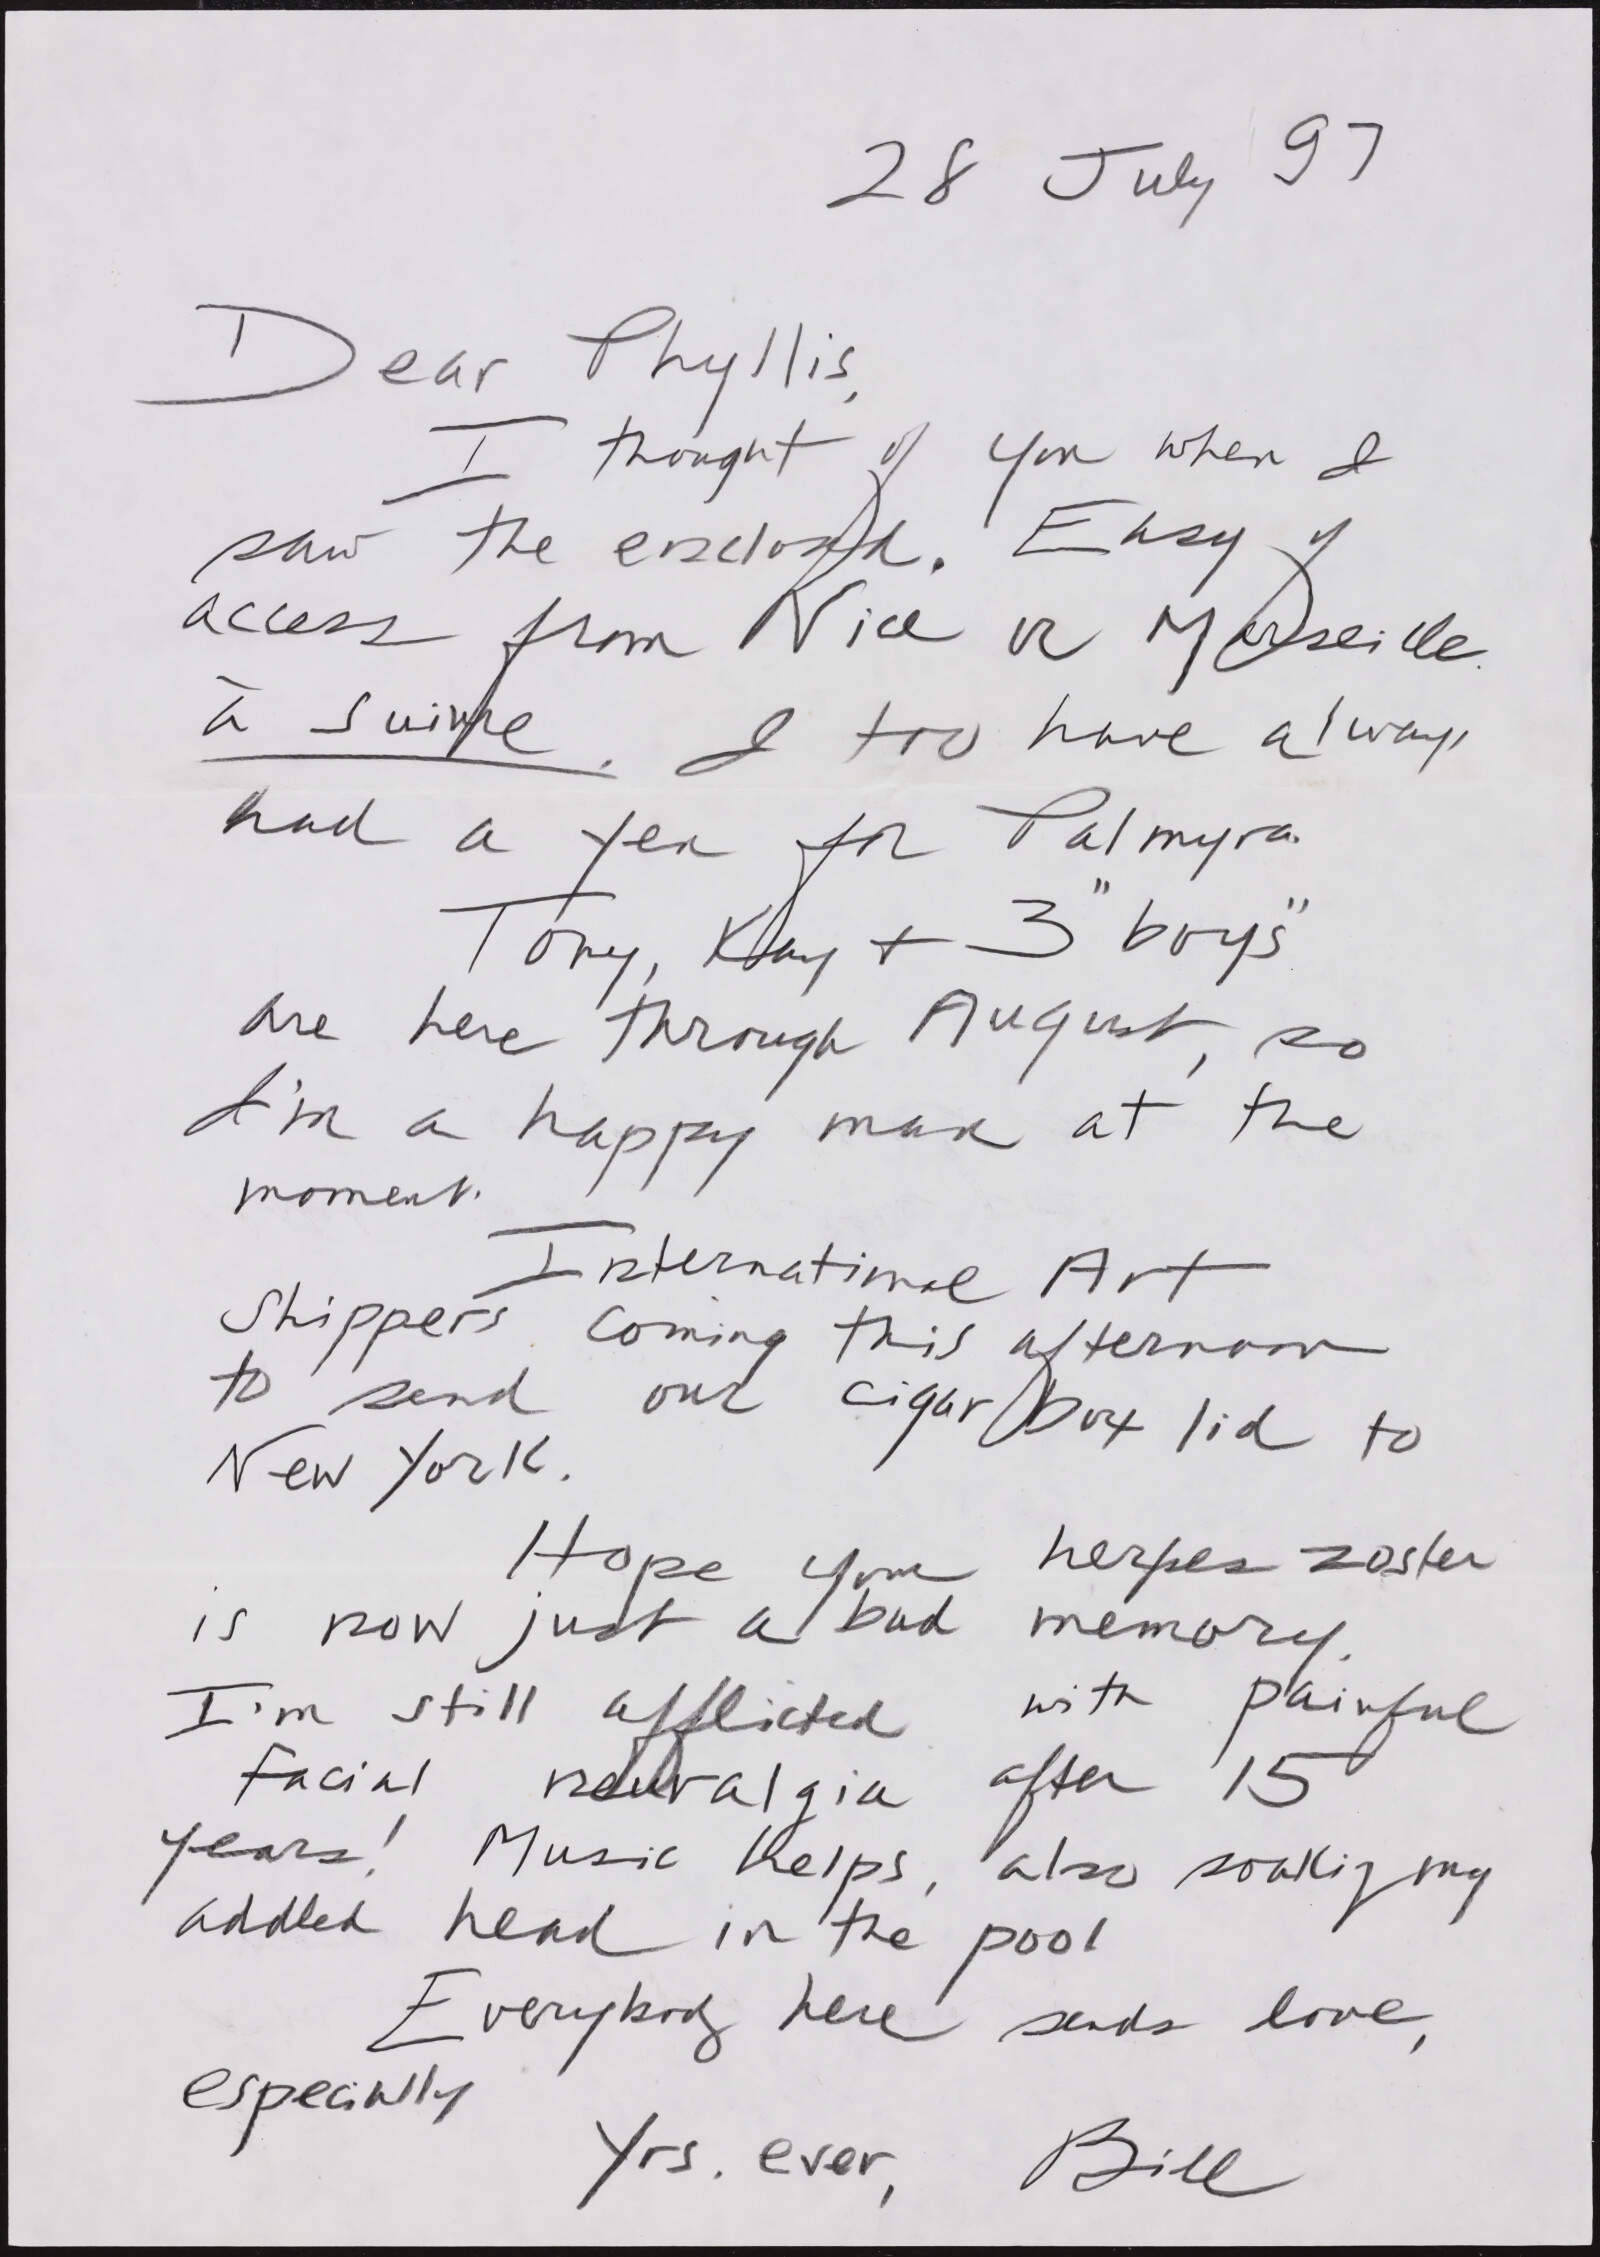 28 July 97
Dear Phyllis,
I thought of you when I
saw the enclosed. Easy of
access from Nice or Marseille.
à suivre. I too have always
had a yen for Palmyra.
Tony, Kay + 3 "boys"
are here through August, so
I'm a happy man at the
moment.
International Art
Shippers coming this afternoon
to send our cigar box lid to
New York.
Hope your herpes zoster
is now just a bad memory.
I'm still afflicted with painful
facial neuralgia after 15
years! Music helps, also soaking my
addled head in the pool
Everybody here sends love,
especially
Yrs. ever, Bill